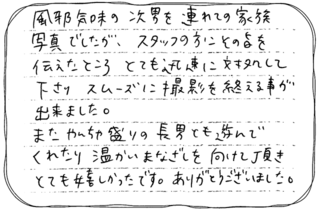 風邪気味の次男を連れての家族
写真でしたが、スタッフの方にその旨を
伝えたところ とても迅速に対処して
下さり スムーズに撮影を終える事が
出来ました。
また やんちゃ盛りの長男とも遊んで
くれたり 温かいまなざしを向けて頂き
とても嬉しかったです。ありがとうございました。